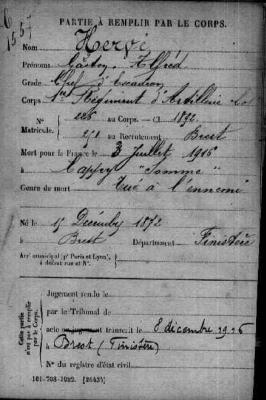 PARTIE À REMPLIR PAR LE CORPS.
Nom Hervé
Prénoms Gaston, Alfred
Grade Chef d'Escadron
Corps 1er Régiment d'Artillerie Col
226 au Corps. — Cl 1892.
Matricule. 271 au Recrutement Brest
Mort pour la France le 3 Juillet 1916
à Cappy "Somme"
Genre de mort Tué à l'ennemi
Né le 15 Décembre 1872
à Brest Département Finistère
Arr municipal (pr Paris et Lyon), à défaut rue et N°.
Cette partie n'est pas à remplir par le Corps.
Jugement rendu le
par le Tribunal de
acte ou jugement transcrit le 8 décembre 1916
à Brest (Finistère)
N° du registre d'état civil
101-708-1922. [26434]